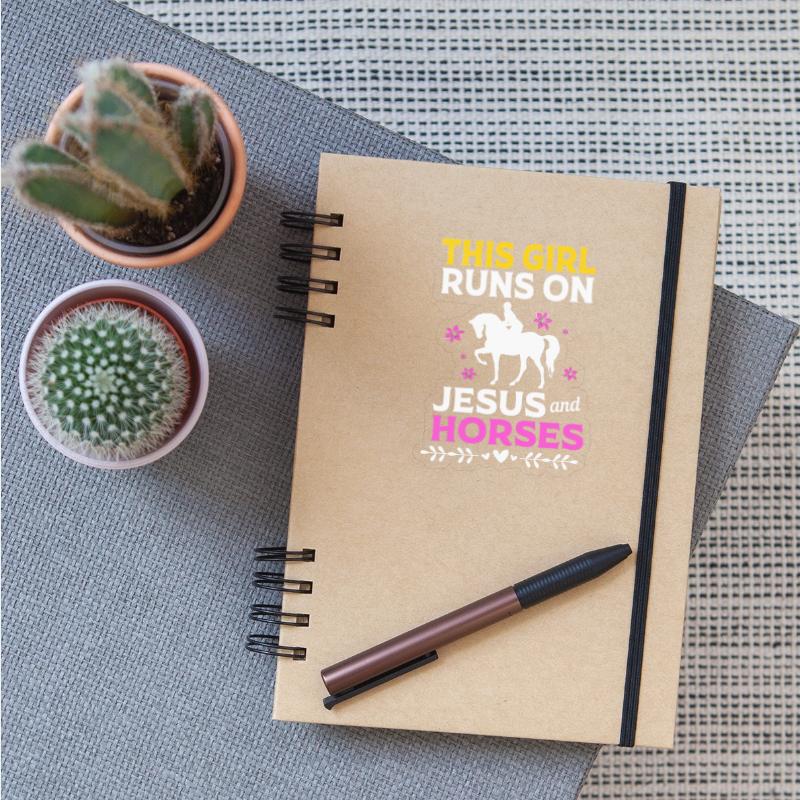 THIS GIRL
RUNS ON
JESUS and
HORSES